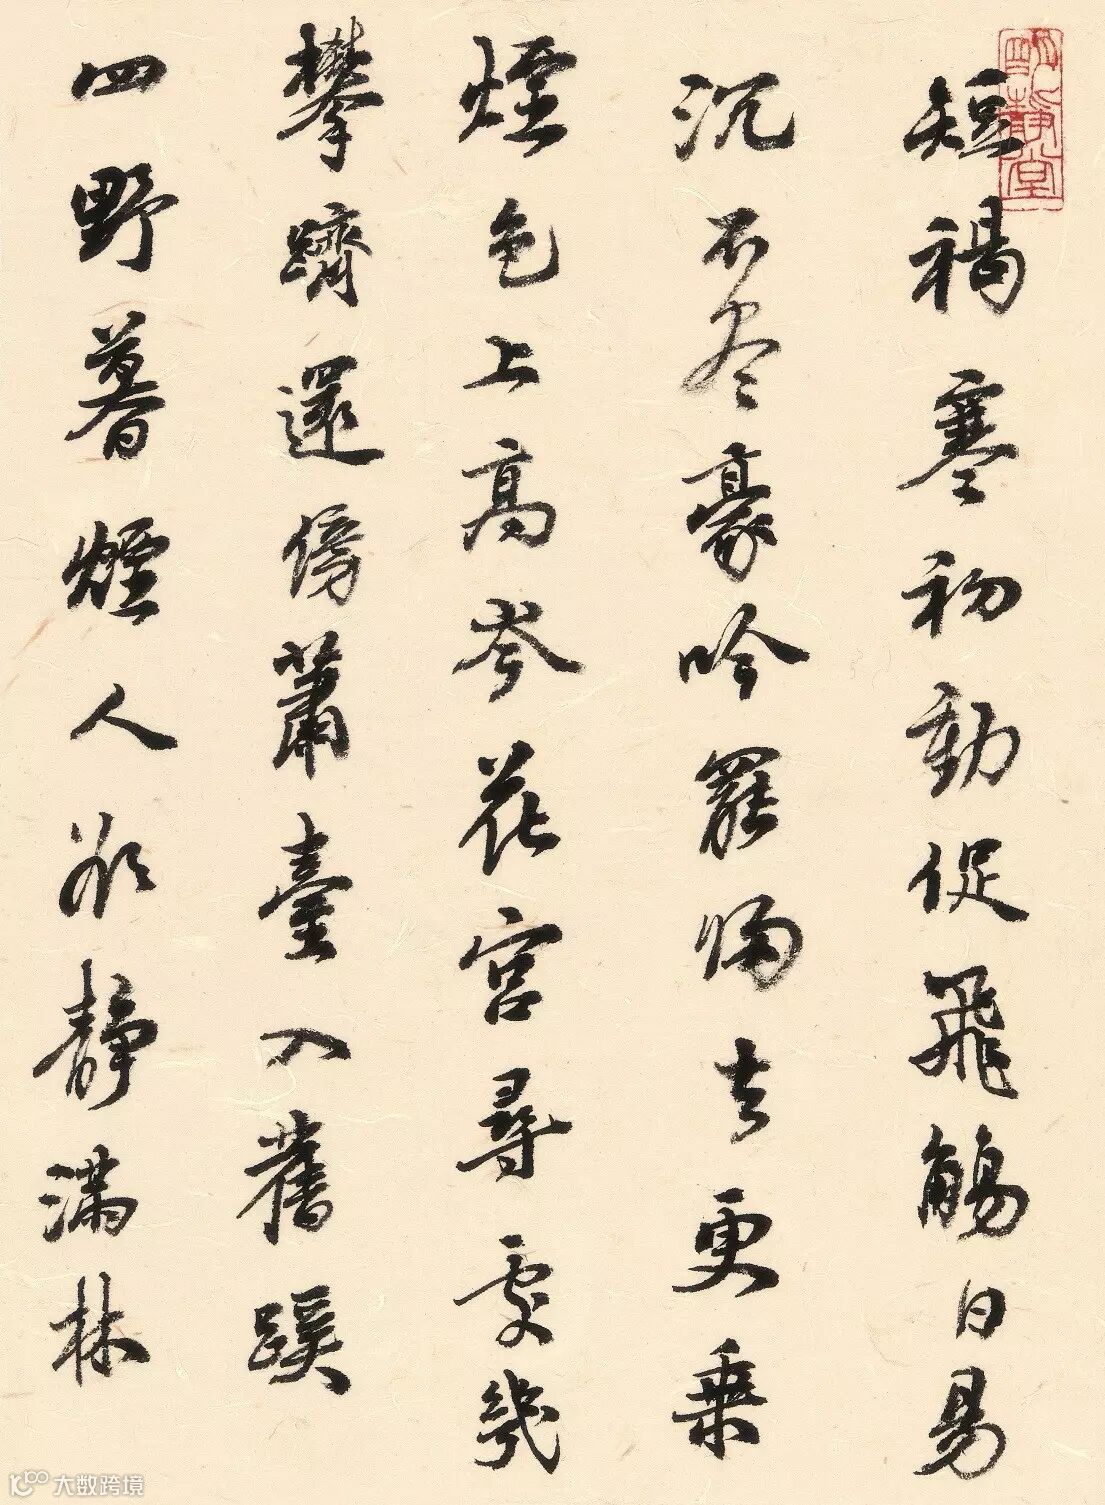 短褐寒初動促飛觴日易
沉不盡豪吟罷歸去更乘
煙色上高岑花宮尋處幾
攀躋還傍蕭臺入舊蹊
四野暮煙人欲靜滿林
靜堂
大数跨境